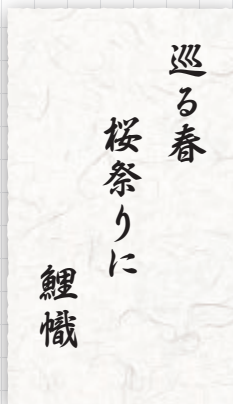 巡る春
桜祭りに
鯉幟